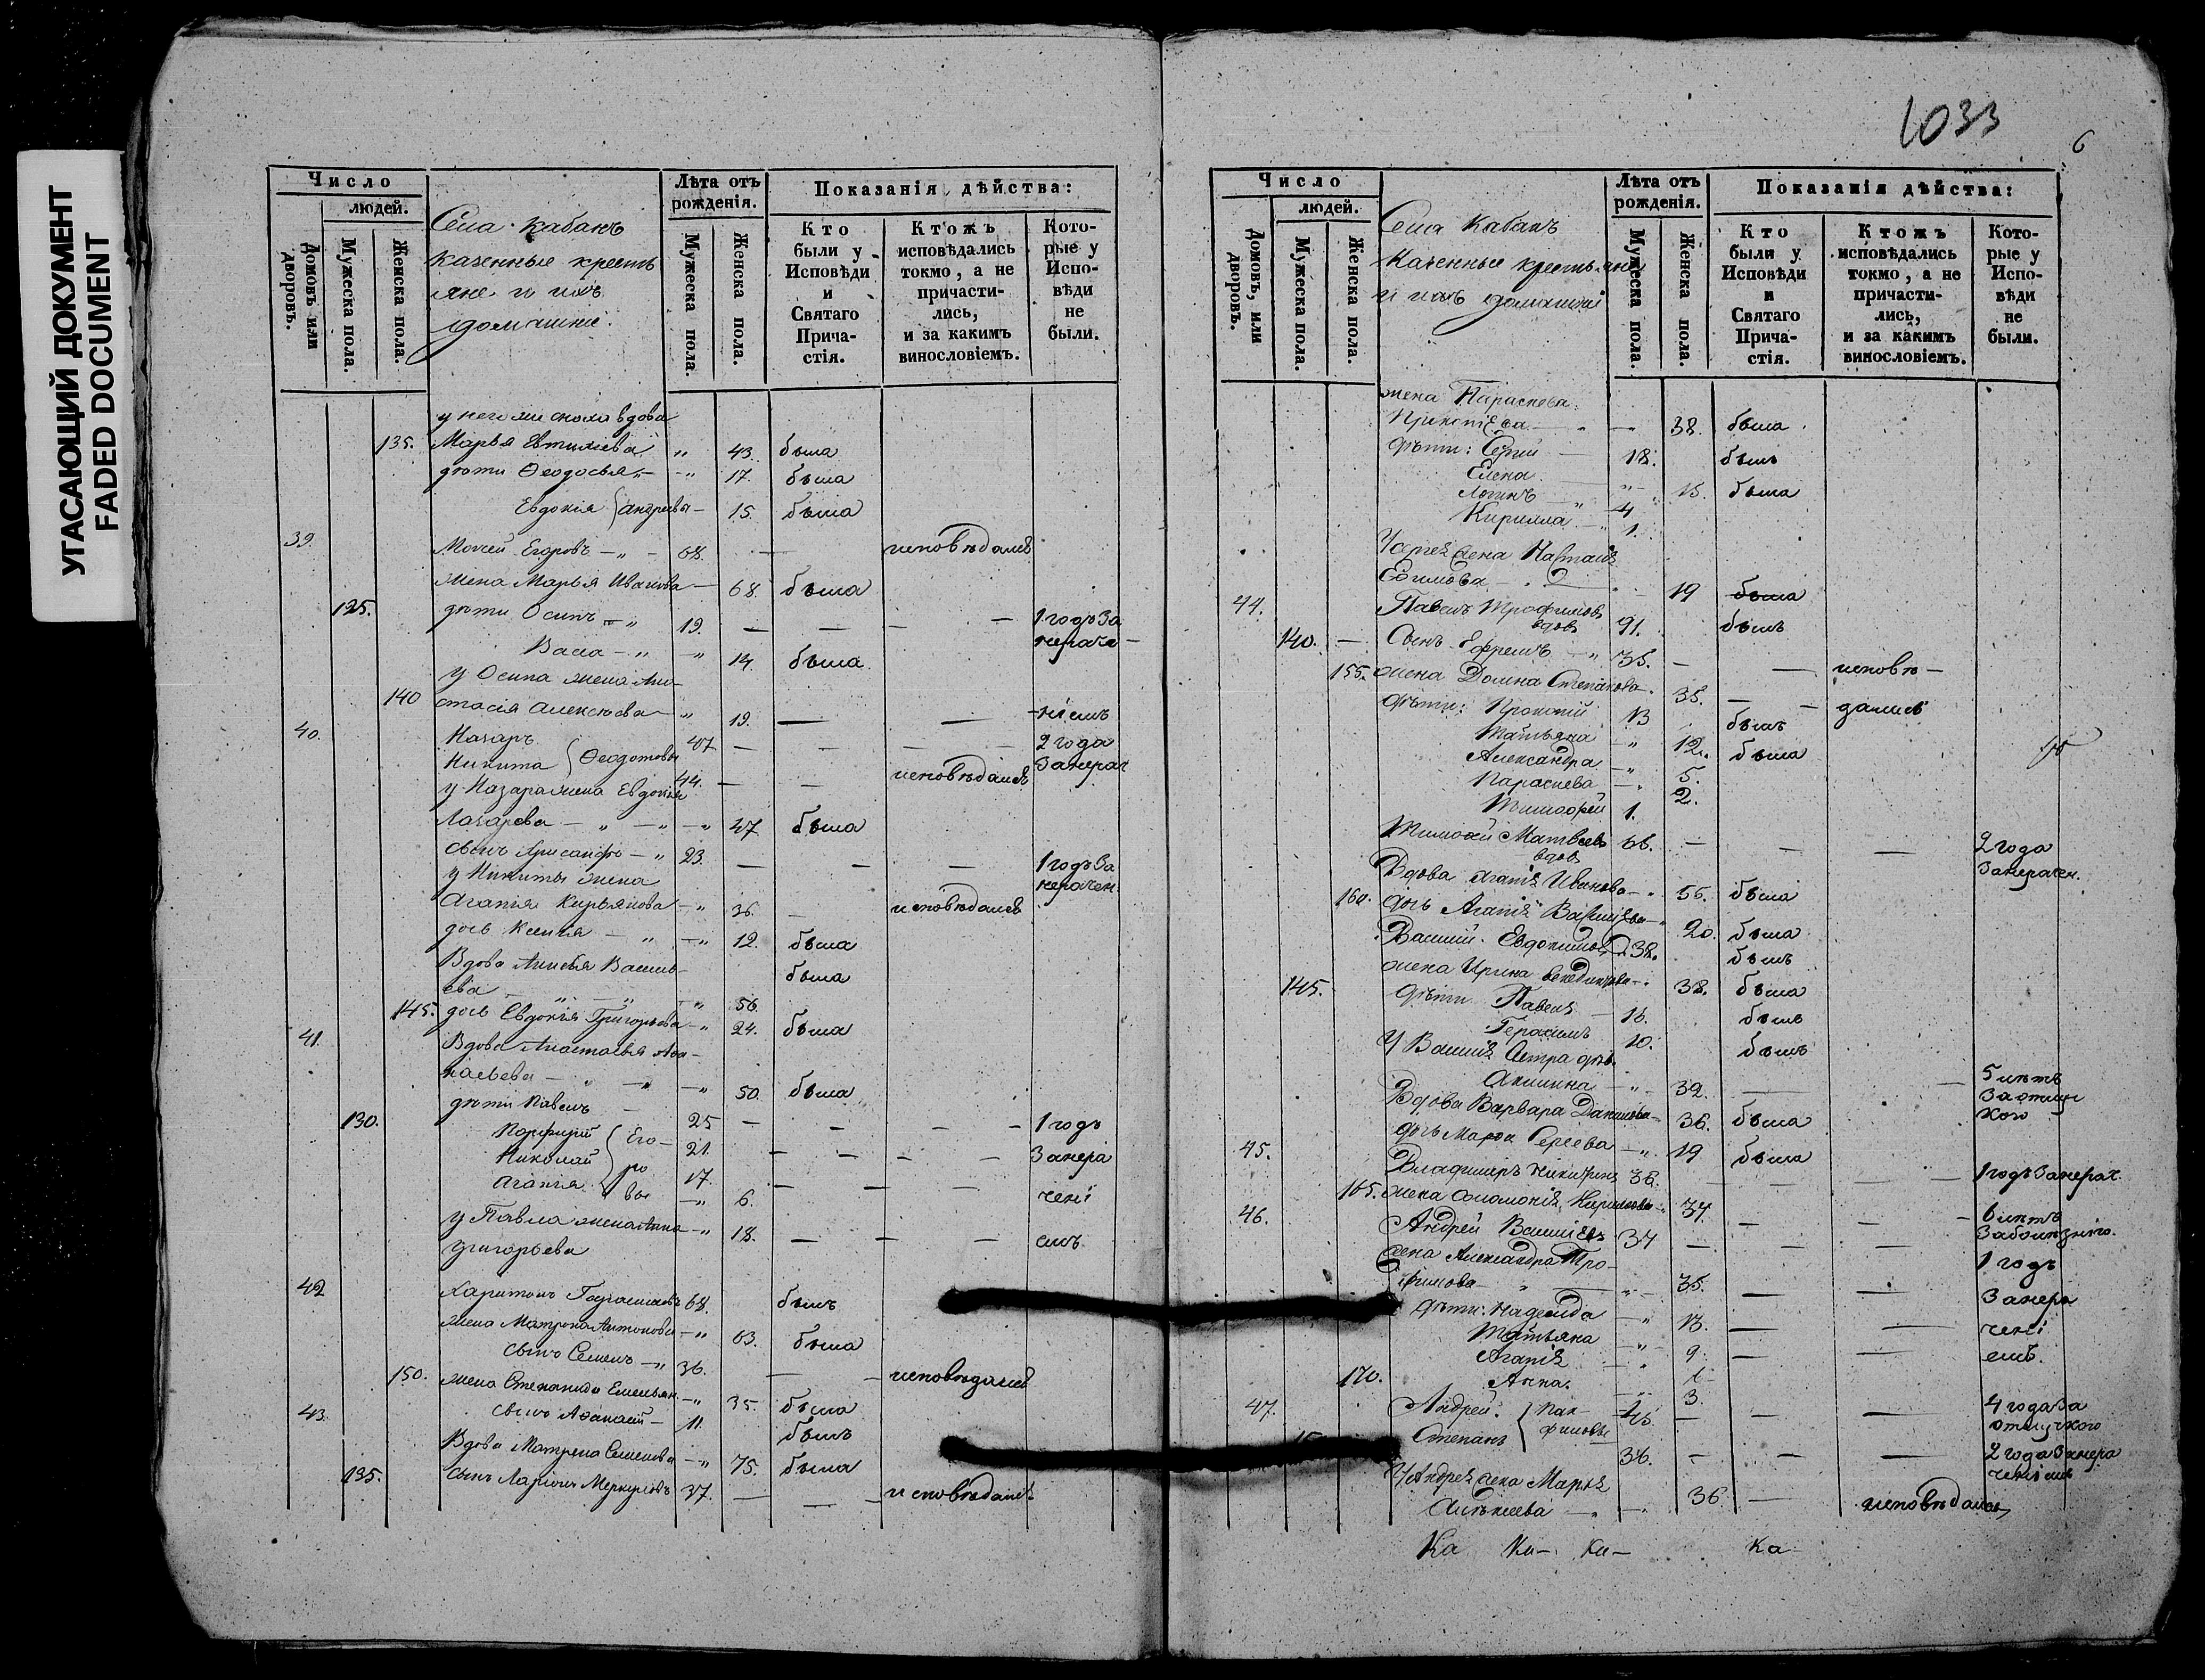 УГАСАЮЩИЙ ДОКУМЕНТ
FADED DOCUMENT
Число
людей.
Домовъ или дворовъ.
Мужеска пола.
Женска пола.
Села Кабанъ
казенные кресть
яне и ихъ
домашніе.
Лѣта отъ рожденія.
Мужеска пола.
Женска пола.
Показанія дѣйства:
Кто были у Исповѣди и Святаго Причастія.
Ктожъ исповѣдались токмо, а не причастились, и за какимъ винословіемъ.
Которые у Исповѣди не были.
у него же сноха вдова
135. Марья Евтихіева " 43. была
дѣти Ѳеодосья " 17. была
Евдокія Андреевы 15. была
39. Моисей Егоровъ 68. исповѣдался
жена Марья Иванова 68. была
125. дѣти Осипъ 19. 1 годъ за
нераче
Васса 14. была
у Осипа жена Ана-
140 стасія Алексѣева " 19. ніемъ
40. Назаръ 47 2 года
Никита Ѳеодотовы 44. исповѣдался занерач
у Назара жена Евдокія
Лазарева 47 была
сынъ Хрисанфъ 23. 1 годъ за
у Никиты жена нерачен.
Агапія Кирьянова 36. исповѣдалась
дочь Ксенія 12. была
Вдова Анисья Василь- была
ева 56.
145. дочь Евдокія Григорьева 24. была
41. Вдова Анастасья Аѳа-
насьева 50. была
дѣти Павелъ 25 1 годъ
130. Порфирій Его- 21. занера
Николай ро 17. чені
Агапія вы 6.
у Павла жена Анна 18. емъ
Григорьева
42 Харитонъ Герасимовъ 68. былъ
жена Матрона Антонова 63. была
сынъ Семенъ 36. исповѣдался
150. жена Степанида Емельян. 35. была
43. сынъ Аѳанасій 11. былъ
Вдова Матрена Семенова 75. была
135. сынъ Ларіонъ Меркуловъ 37. исповѣдался
1033
6
Число
людей.
Домовъ, или дворовъ.
Мужеска пола.
Женска пола.
Села Кабанъ
Казенные крестьяне
и ихъ домашніи
Лѣта отъ рожденія.
Мужеска пола.
Женска пола.
Показанія дѣйства:
Кто были у Исповѣди и Святаго Причастія.
Ктожъ исповѣдались токмо, а не причастились, и за какимъ винословіемъ.
Которые у Исповѣди не были.
жена Параскева
38. была
дѣти: Сергій 18. былъ
Елена 15. была
Логинъ 4
Кирилла 1.
У Сергея жена Наталія
Ефимова 19 была
44. Павелъ Трофимовъ
вдовъ 91. былъ
140. Сынъ Ефремъ 35. исповѣ
155. жена Домна Степанова 35. дались
дѣти: Прокопій 13 былъ
Татьяна 12. была
Александра 5.
Параскева 2.
Тимофей 1.
Тимофей Матвеевъ 66. 2 года
вдовъ занерачен.
Вдова Агапія Иванова 55. была
160. дочь Агапія Васильева 20. была
Василій Евдокимовъ 38. былъ
жена Ирина 38. была
145. дѣти Павелъ 16. былъ
Герасимъ 10. былъ
У Василія сестра дѣв.
Акилина 32. 5 лѣтъ
Вдова Варвара Данилова 36. была
дочь Марѳа Сергеева 19 была
45. Владимиръ Никитинъ 36. 1 годъ занерач.
165. жена Соломонія Кирилова 34. 6 лѣтъ
46. Андрей Васильевъ 34
жена Александра Тро- 1 годъ
фимова 35. занера
дѣти: Надежда 13. чені
Татьяна 9. емъ.
Агапія
170. Анна. 3.
47. Андрей. Пан- 46. 4 года за
Степанъ филовы 36. 2 года занера
ченіемъ
У Андрея жена Марія
Алѣксеева 36. исповѣдалась
Ка Ка- Ка- Ка-